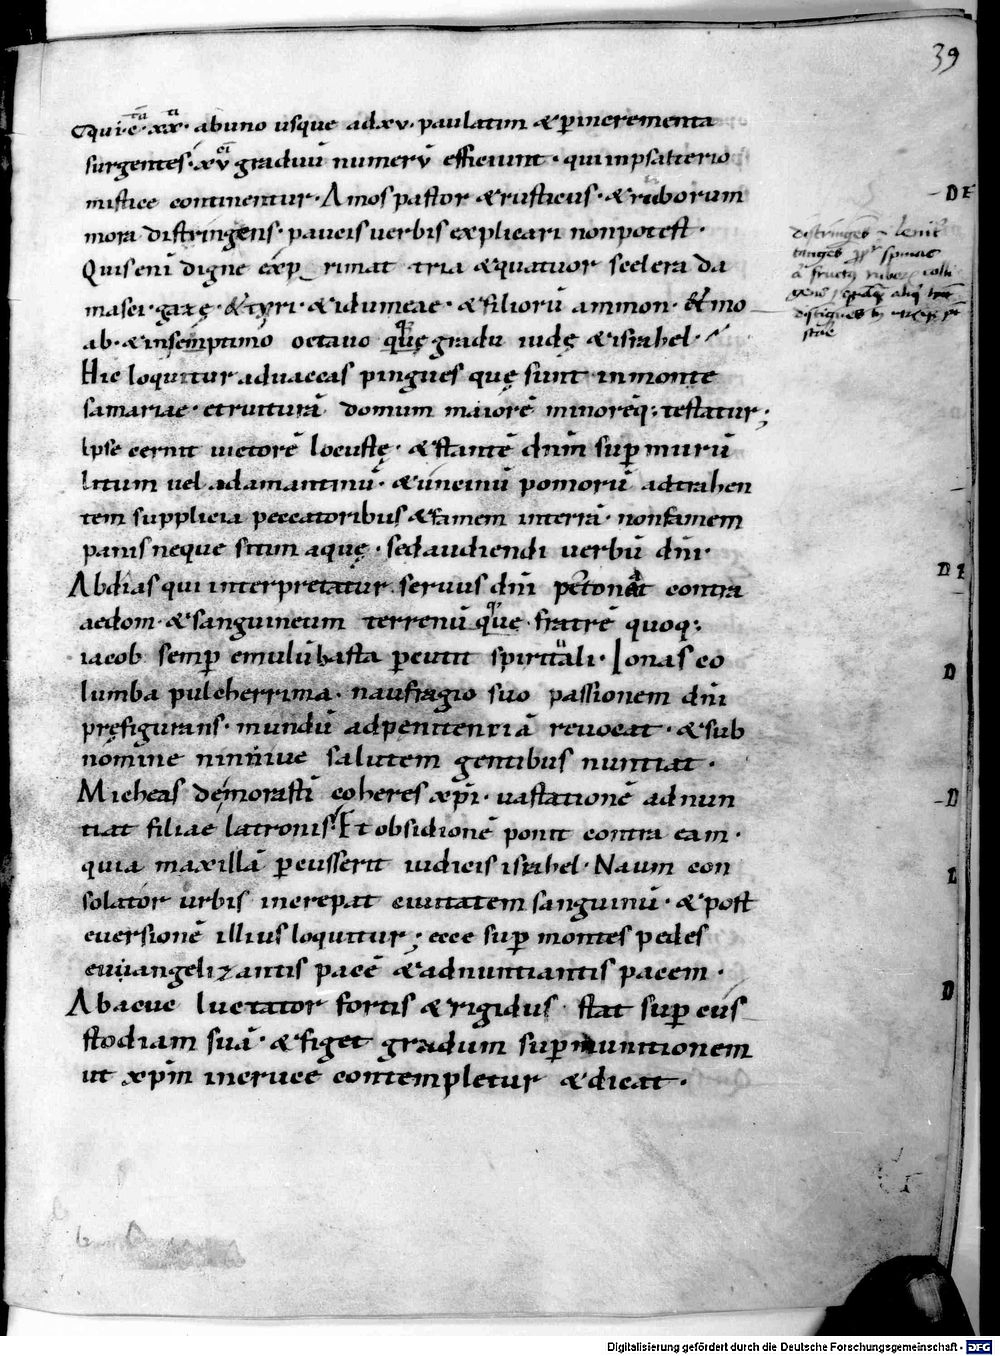 39
Qui·ē· xx· ab uno usque ad·xv· paulatim & p incrementa
surgentes· xv graduū numerū efficiunt · qui in psalterio
mistice continentur· Amos pastor & rusticus· & ruborum
mora distringens· paucis uerbis explicari non potest·
Quis enī digne exp rimat tria & quatuor scelera da
masci· gazę· & tyri· & idumeae· & filiorū ammon· & mo
ab· & in septimo octauo quę gradu iudę & israhel·
Hic loquitur ad uaccas pingues quę sunt in monte
samariae· et ruiturā domum maiorē minorēq: testatur;
Ipse cernit uictorē locustę· & stantē dn̄m sup murū
litum uel adamantinū· & uncinū pomorū adtrahen
tem supplicia peccatoribus & famem in terrā· non famem
panis neque sitim aquę· sed audiendi uerbū dn̄i·
Abdias qui interpretatur seruus dn̄i ptonat contra
aedom· & sanguineum terrenū que· fratrē quoq:
iacob semp emulū hasta pcutit spiritāli· Ionas co
lumba pulcherrima· naufragio suo passionem dn̄i
pręfigurans· mundū ad penitentiā reuocat· & sub
nomine niniue salutem gentibus nuntiat·
Micheas de morasti coheres xp̄i· uastationē adnun
tiat filiae latronis· Et obsidionē ponit contra eam·
quia maxillā pcusserit iudicis israhel· Naum con
solator urbis increpat ciuitatem sanguinū· & post
euersionē illius loquitur; ecce sup montes pedes
euuangelizantis pacē & adnuntiantis pacem·
Abacuc luctator fortis & rigidus· stat sup cus
stodiam suā· & figet gradum sup munitionem
ut xp̄m in cruce contempletur & dicat·
D E
D
D
L
D
Digitalisierung gefördert durch die Deutsche Forschungsgemeinschaft · DFG